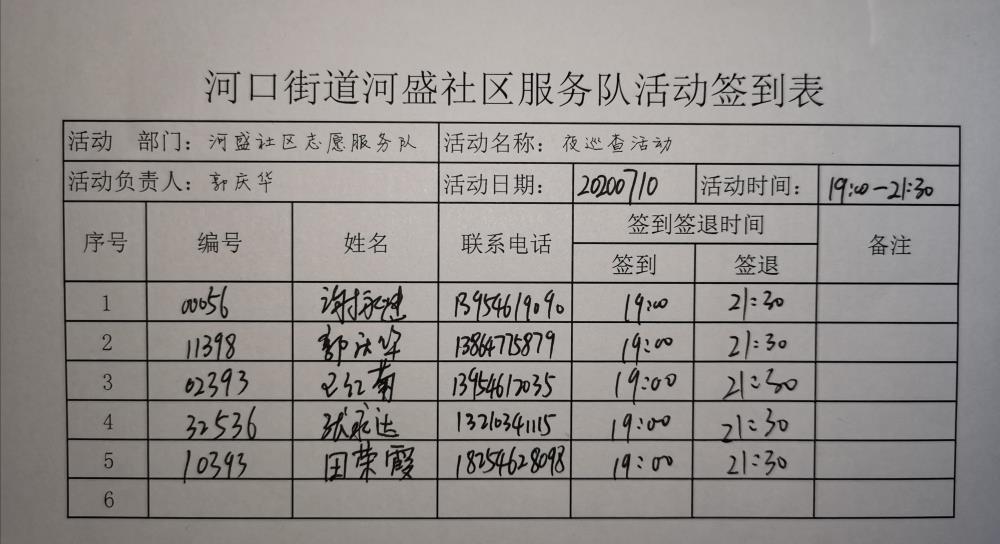 河口街道河盛社区服务队活动签到表
活动 部门：河盛社区志愿服务队 活动名称：夜巡查活动
活动负责人：郭庆华 活动日期：20200710 活动时间：19:00—21:30
序号 编号 姓名 联系电话 签到签退时间 备注
签到 签退
1 00056 谢振建 13954619090 19:00 21:30
2 11398 郭庆华 13864775879 19:00 21:30
3 02393 王红菊 13954612035 19:00 21:30
4 32536 张永达 13210341115 19:00 21:30
5 10393 田荣霞 18254628098 19:00 21:30
6